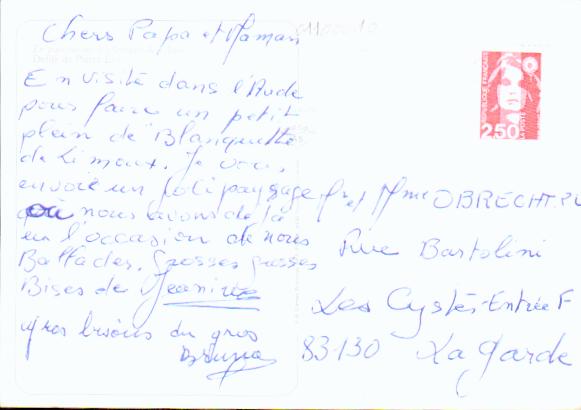 Chers Papa et Maman
En visite dans l'Aude
pour faire un petit
plein de Blanquette
de Limoux. Je vous
envoie un joli paysage
où nous avons déjà
eu l'occasion de nous
Ballades. Grosses grosses
Bises de Jeanine
gros bisous du gros
Bruno
REPUBLIQUE FRANÇAISE
2,50
LA POSTE
Mr et Mme OBRECHT
Rue Bartolini
Les Cystes-Entrée F
83130 La Garde